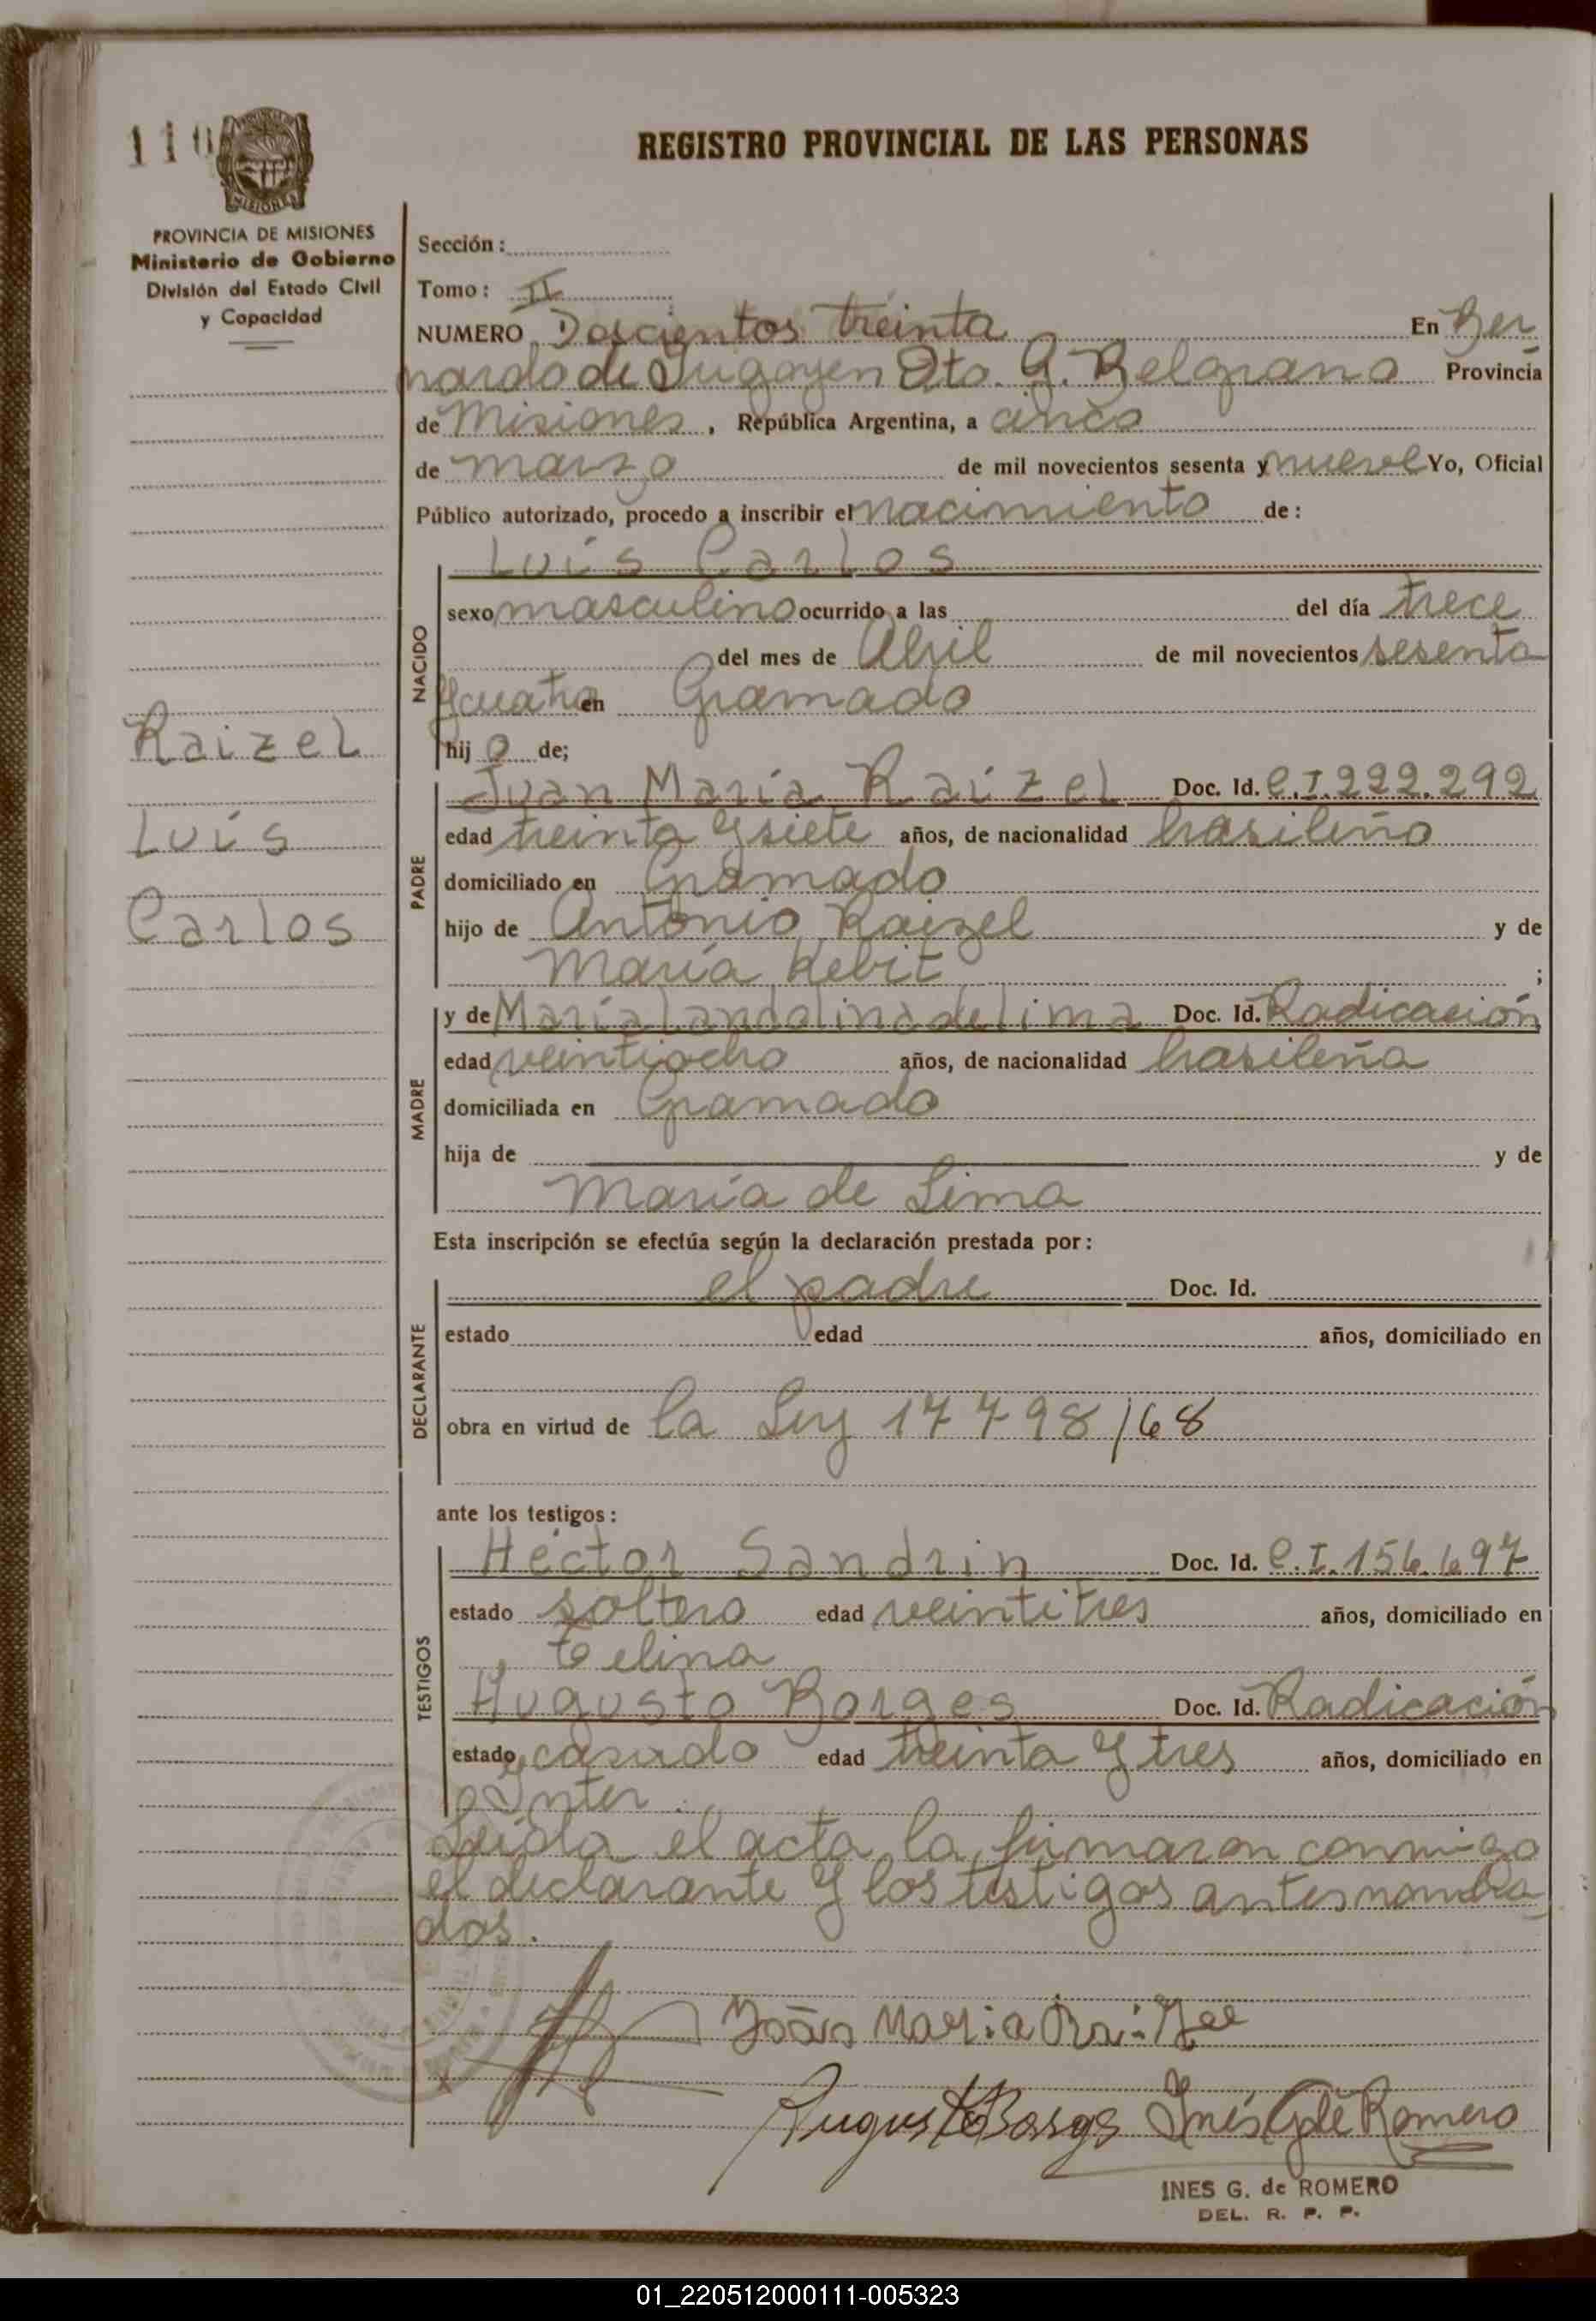 110
MISIONES
REGISTRO PROVINCIAL DE LAS PERSONAS
PROVINCIA DE MISIONES
Ministerio de Gobierno
División del Estado Civil
y Capacidad
Raizel
Luís
Carlos
Sección:
Tomo: II
NUMERO Doscientos treinta En Ber
nardo de Irigoyen Dto. G. Belgrano Provincia
de Misiones, República Argentina, a cinco
de marzo de mil novecientos sesenta y nueve Yo, Oficial
Público autorizado, procedo a inscribir el nacimiento de:
NACIDO
Luís Carlos
sexo masculino ocurrido a las del día trece
del mes de Abril de mil novecientos sesenta
y cuatro en Gramado
hijo de;
PADRE
Juan María Raizel Doc. Id. C.I. 222.292
edad treinta y siete años, de nacionalidad brasileño
domiciliado en Gramado
hijo de Antonio Raizel y de
María Kebit ;
MADRE
y de María Landolina de lima Doc. Id. Radicación
edad veintiocho años, de nacionalidad brasileña
domiciliada en Gramado
hija de y de
María de Lima
Esta inscripción se efectúa según la declaración prestada por:
DECLARANTE
el padre Doc. Id.
estado edad años, domiciliado en
obra en virtud de la Ley 17798/68
ante los testigos:
TESTIGOS
Héctor Sandrin Doc. Id. C.I. 156.697
estado soltero edad veintitres años, domiciliado en
Augusto Borges Doc. Id. Radicación
estado casado edad treinta y tres años, domiciliado en
Leida el acta, la firmaron conmigo
el declarante y los testigos antes nombra
dos.
João Maria Raizel
Augusto Borges Inés G de Romero
INES G. de ROMERO
DEL. R. P. P.
01_220512000111-005323